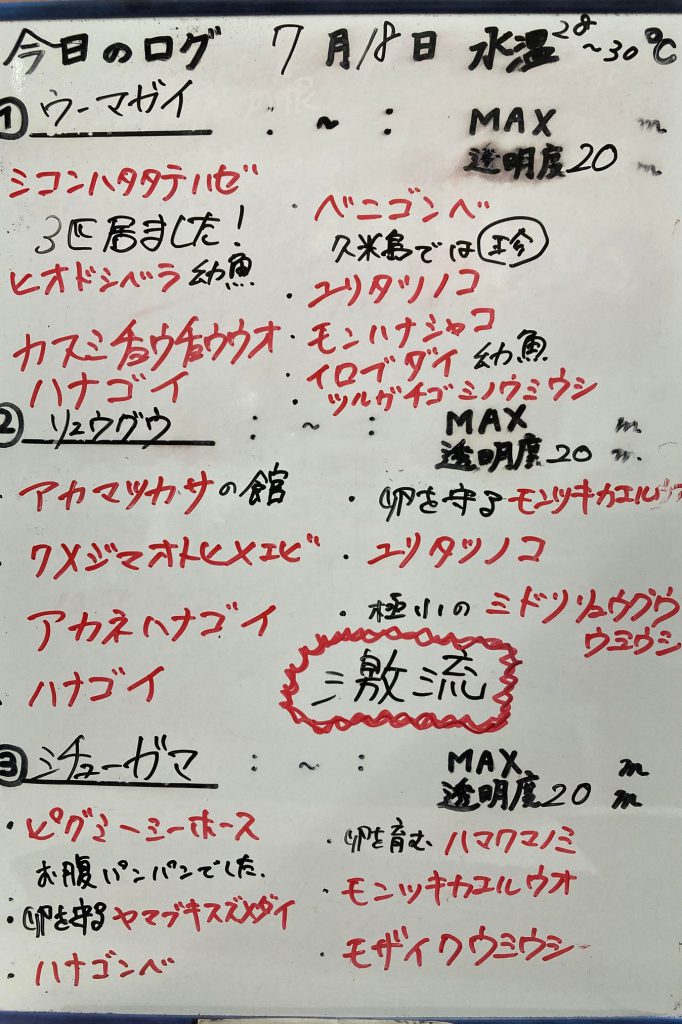 今日のログ 7月18日 水温28~30℃
① ウーマガイ : ~ : MAX m
透明度20 m
シコンハタタテハゼ
3匹居ました!
ヒオドシベラ 幼魚
カスミチョウチョウウオ
ハナゴイ
・ベニゴンベ
久米島では珍
・ユリタツノコ
・モンハナシャコ
・イロブダイ 幼魚
・ツルガチゴミノウミウシ
② リュウグウ : ~ : MAX m
透明度20 m
・アカマツカサの館
・クメジマオトヒメエビ
アカネハナゴイ
・ハナゴイ
・卵を守るモンツキカエルウオ
・ユリタツノコ
・極小のミドリリュウグウ
ウミウシ
激流
③ シチューガマ : ~ : MAX m
透明度20 m
・ピグミーシーホース
お腹パンパンでした.
・卵を守るヤマブキスズメダイ
・ハナゴンベ
・卵を育むハマクマノミ
・モンツキカエルウオ
・モザイクウミウシ